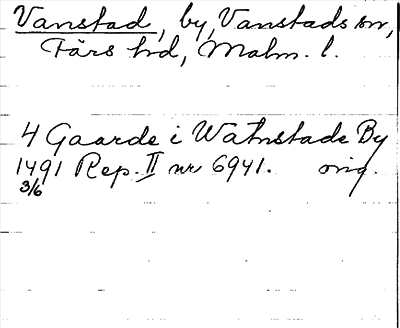 Vanstad, by, Vanstads sn,
Färs hd, Malm. l.
4 Gaarde i Watnstade By
1491 Rep. II nr 6941. orig.
3/6